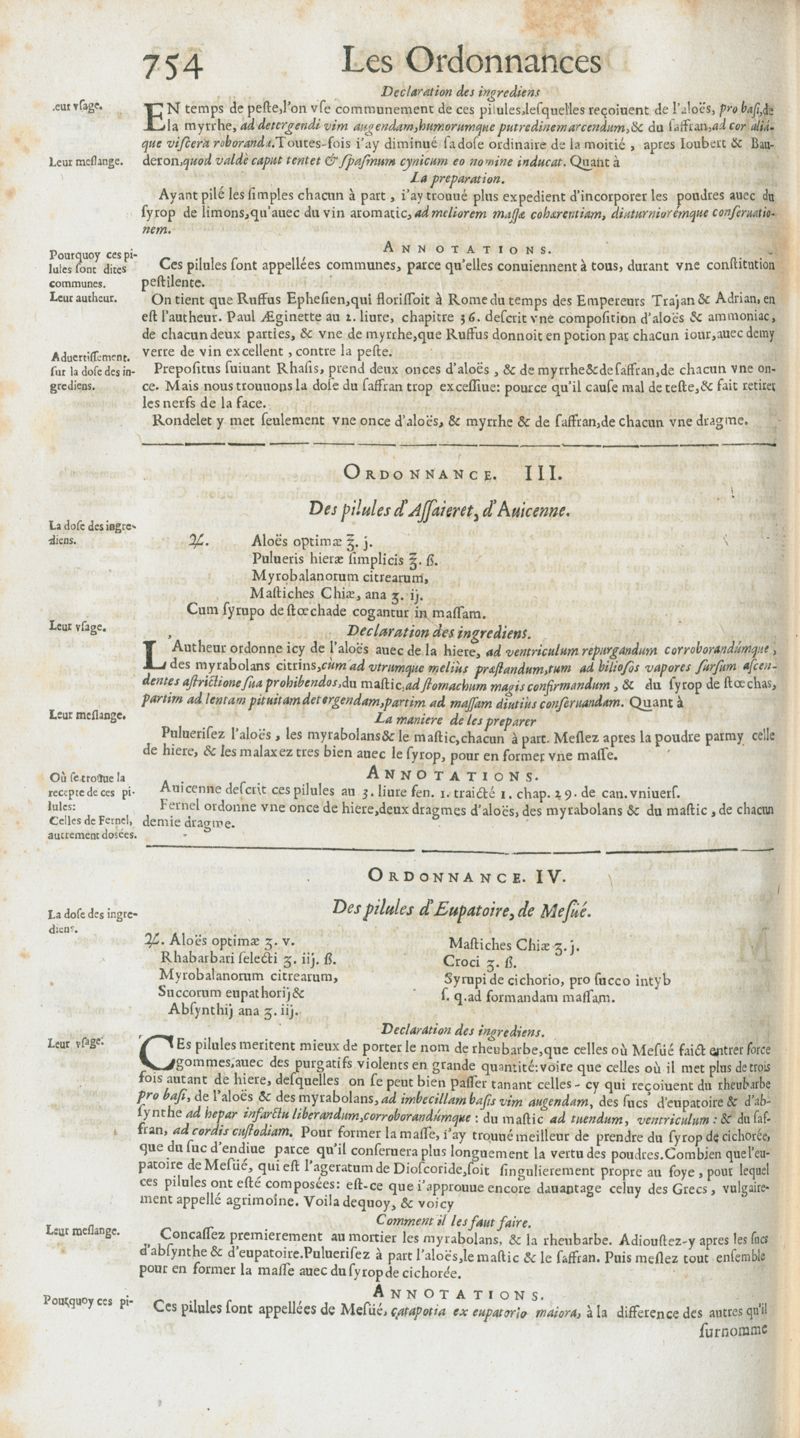 754 Les Ordonnances
Declaration des ingrediens
.eur vſage.
EN temps de peſte,l'on vſe communement de ces pilules,leſquelles reçoiuent de l'aloës, pro baſi,de
la myrrhe, ad detergendi vim augendam,humorumque putredinem arcendum,& du ſaffran,ad cor aliá-
que viſcera roboranda.Toutes-fois i'ay diminué ſa doſe ordinaire de la moitié , apres Ioubert & Bau-
Leur meſlange.
deron,quod valdè caput tentet & ſpaſinum cynicum eo nomine inducat. Quant à
La preparation.
Ayant pilé les ſimples chacun à part , i'ay trouué plus expedient d'incorporer les poudres auec du
ſyrop de limons,qu'auec du vin aromatic, ad meliorem maſſæ cohærentiam, diuturniorémque conſeruatio-
nem.
ANNOTATIONS.
Pourquoy ces pi-
lules ſont dites
communes.
Ces pilules ſont appellées communes, parce qu'elles conuiennent à tous, durant vne conſtitution
peſtilente.
Leur autheur.
On tient que Ruffus Epheſien,qui floriſſoit à Rome du temps des Empereurs Trajan & Adrian, en
eſt l'autheur. Paul Æginette au 2. liure, chapitre 36. deſcrit vne compoſition d'aloës & ammoniac,
de chacun deux parties, & vne de myrrhe,que Ruffus donnoit en potion par chacun iour,auec demy
verre de vin excellent , contre la peſte.
Aduertiſſement.
ſur la doſe des in-
grediens.
Prepoſitus ſuiuant Rhaſis, prend deux onces d'aloës , & de myrrhe&de ſaffran,de chacun vne on-
ce. Mais nous trouuons la doſe du ſaffran trop exceſſiue: pource qu'il cauſe mal de teſte,& fait retirer
les nerfs de la face.
Rondelet y met ſeulement vne once d'aloës, & myrrhe & de ſaffran,de chacun vne dragme.
ORDONNANCE. III.
Des pilules d'Aſſaieret, d'Auicenne.
La doſe des ingre-
diens.
♃. Aloës optimæ ℥. j.
Pulueris hieræ ſimplicis ℥. ß.
Myrobalanorum citrearum,
Maſtiches Chiæ, ana ʒ. ij.
Cum ſyrupo de ſtœchade cogantur in maſſam.
Leur vſage.
Declaration des ingrediens.
L'Autheur ordonne icy de l'aloës auec de la hiere, ad ventriculum repurgandum corroborandúmque ,
des myrabolans citrins,cùm ad vtrumque meliùs præſtandum,tum ad bilioſos vapores ſurſum aſcen-
dentes aſtrictione ſua prohibendos,du maſtic,ad ſtomachum magis confirmandum , & du ſyrop de ſtœchas,
partim ad lentam pituitam detergendam,partim ad maſſam diutiùs conſeruandam. Quant à
Leur meſlange.
La maniere de les preparer
Puluerifez l'aloës , les myrabolans& le maſtic,chacun à part. Meſlez apres la poudre parmy celle
de hiere, & les malaxez tres bien auec le ſyrop, pour en former vne maſſe.
ANNOTATIONS.
Où ſe trouue la
recepte de ces pi-
lules:
Auicenne deſcrit ces pilules au 3. liure fen. 1. traicté 1. chap. 29. de can. vniuerſ.
Celles de Fernel,
autrement doſées.
Fernel ordonne vne once de hiere,deux dragmes d'aloës, des myrabolans & du maſtic , de chacun
demie dragme.
ORDONNANCE. IV.
Des pilules d'Eupatoire, de Meſué.
La doſe des ingre-
diens.
♃. Aloës optimæ ʒ. v.
Rhabarbari ſelecti ʒ. iij. ß.
Myrobalanorum citrearum,
Succorum eupathorij &
Abſynthij ana ʒ. iij.
Maſtiches Chiæ ʒ. j.
Croci ʒ. ß.
Syrupi de cichorio, pro ſucco intyb
ſ. q.ad formandam maſſam.
Leur vſage.
Declaration des ingrediens.
CEs pilules meritent mieux de porter le nom de rheubarbe,que celles où Meſué faict entrer force
gommes,auec des purgatifs violents en grande quantité:voire que celles où il met plus de trois
fois autant de hiere, deſquelles on ſe peut bien paſſer tanant celles - cy qui reçoiuent du rheubarbe
pro baſi, de l'aloës & des myrabolans,ad imbecillam baſis vim augendam, des ſucs d'eupatoire & d'ab-
ſynthe ad hepar infarctu liberandum,corroborandúmque : du maſtic ad tuendum, ventriculum : & du ſaf-
fran, ad cordis cuſtodiam. Pour former la maſſe, i'ay trouué meilleur de prendre du ſyrop de cichorée,
que du ſuc d'endiue parce qu'il conſeruera plus longuement la vertu des poudres.Combien que l'eu-
patoire de Meſué, qui eſt l'ageratum de Dioſcoride,ſoit ſingulierement propre au foye , pour lequel
ces pilules ont eſté compoſées: eſt-ce que i'approuue encore dauantage celuy des Grecs , vulgaire-
ment appellé agrimoine. Voila dequoy, & voicy
Comment il les faut faire.
Leur meſlange.
Concaſſez premierement au mortier les myrabolans, & la rheubarbe. Adiouſtez-y apres les ſucs
d'abſynthe & d'eupatoire.Puluerifez à part l'aloës,le maſtic & le ſaffran. Puis meſlez tout enſemble
pour en former la maſſe auec du ſyrop de cichorée.
ANNOTATIONS.
Pourquoy ces pi-
Ces pilules ſont appellées de Meſué, catapotia ex eupatorio maiora, à la difference des autres qu'il
ſurnomme